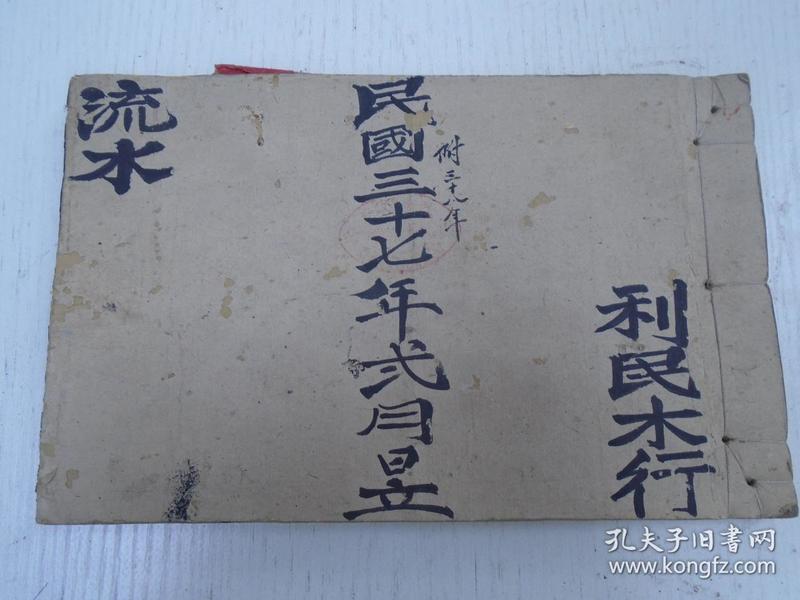 利民木行
民國三十七年弍月昱
附三十八年
流水
孔夫子旧書网
www.kongfz.com